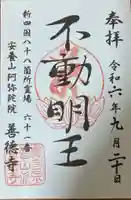 奉拝
令和六年九月二十日
不動明王
新四国八十八箇所霊場 六十一番
安養山阿弥陀院
善徳寺